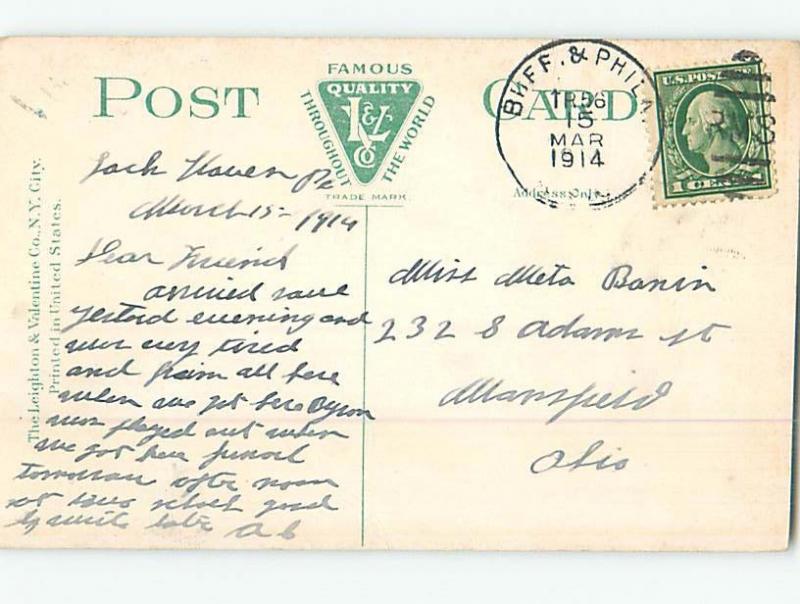 POST CARD
FAMOUS
QUALITY
THROUGHOUT THE WORLD
L&V
Co
TRADE MARK.
BUFF. & PHILA.
TR 56
15
MAR
1914
U.S. POSTAGE
1 CENT
Address Only.
The Leighton & Valentine Co., N.Y. City.
Printed in United States.
Lock Haven Pa
March 15 - 1914
Dear Friend
arrived
evening and
was very tired
and all here
when we got here Byron
was played out when
we got here funeral
tomorrow after noon
good
by write later A B
Miss Meta Bonin
232 S Adams st
Mansfield
Ohio